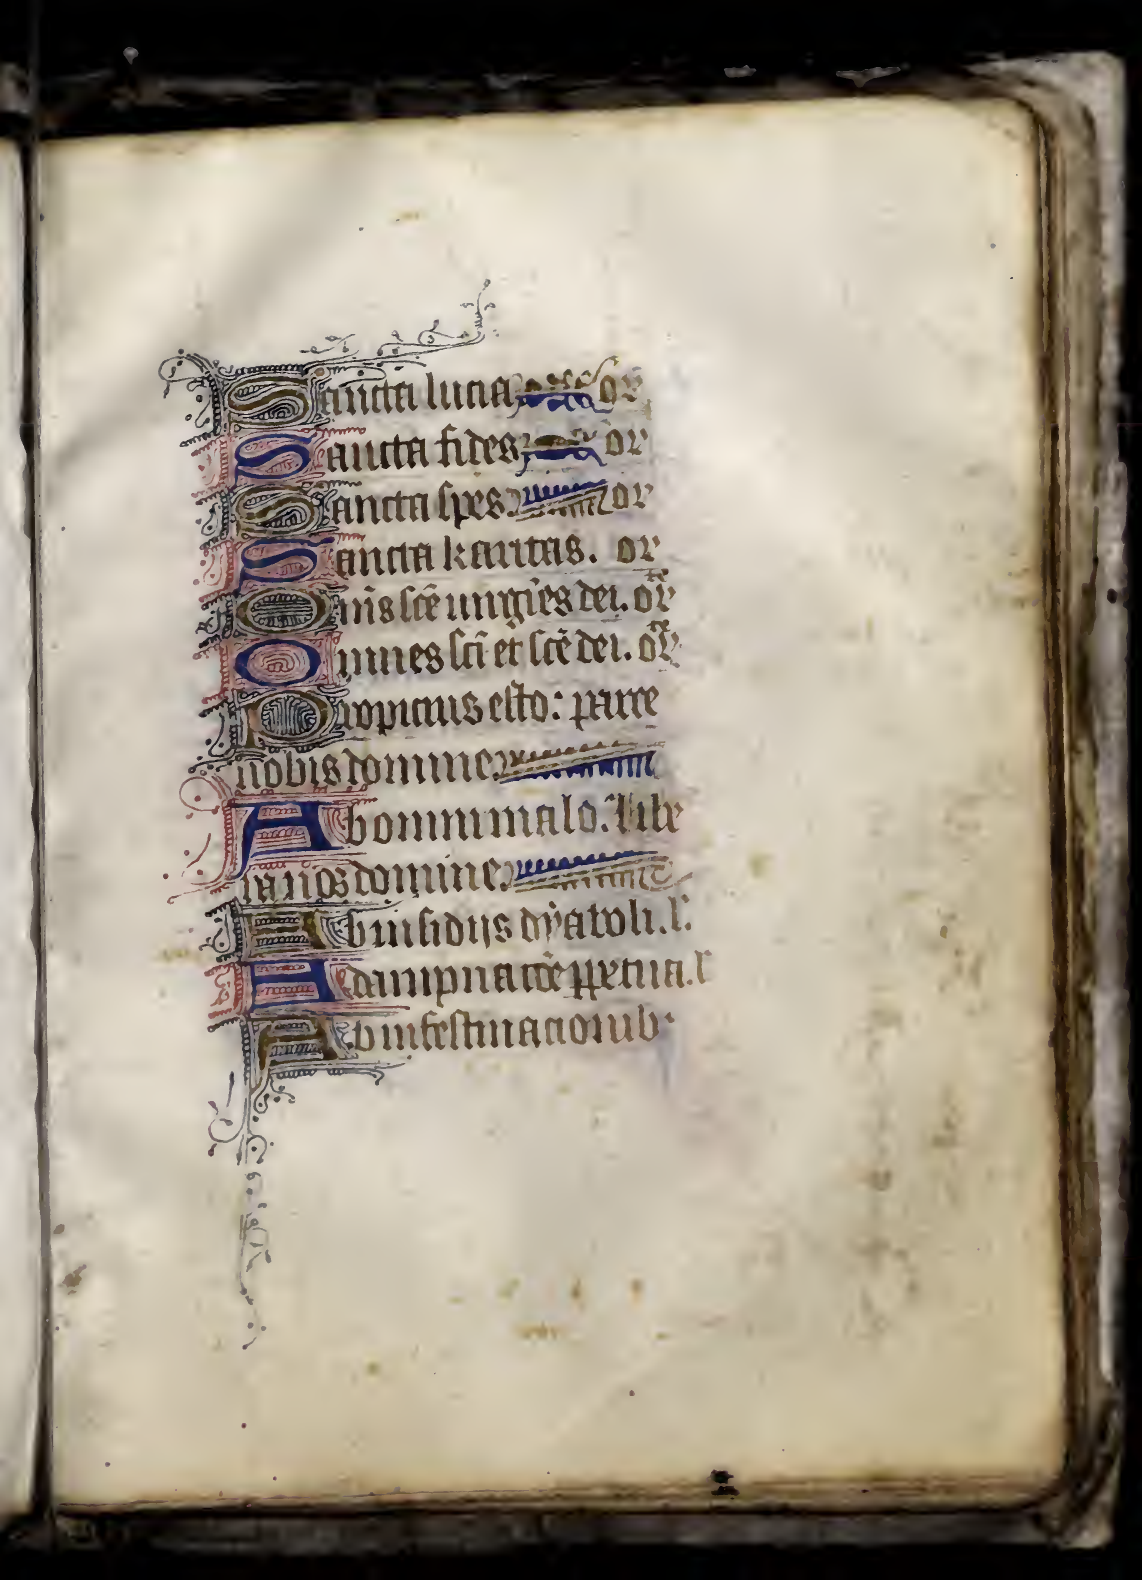 Sancta lucia or
Sancta fides or
Sancta spes or
Sancta karitas. or
Om̄s sc̄e uirgīes dei. or̄
Omnes sc̄i et sc̄e dei. or̄
Propicius esto: parce
nobis domine
Ab omni malo. libe
ra nos domine
Ab insidijs dẏaboli. l.
A dampnac̄oe ꝑpetua. l
Ab infestinacionib